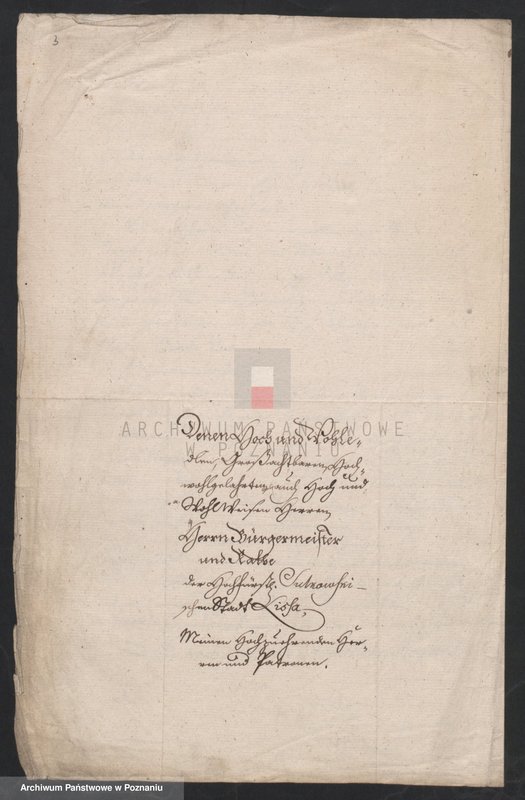 3
Denen Hoch und Wohle-
dlen, Großachtbaren, Hoch-
wohlgelahrten, auch Hoch und
WohlWeisen Herren,
Herrn Bürgermeister
und Rathe
der Hochfürstl. Sulkowski-
schen Stadt Lissa,
Meinen Hochzuehrenden Her-
ren und Patronen.
ARCHIWUM PAŃSTWOWE
W POZNANIU
Archiwum Państwowe w Poznaniu